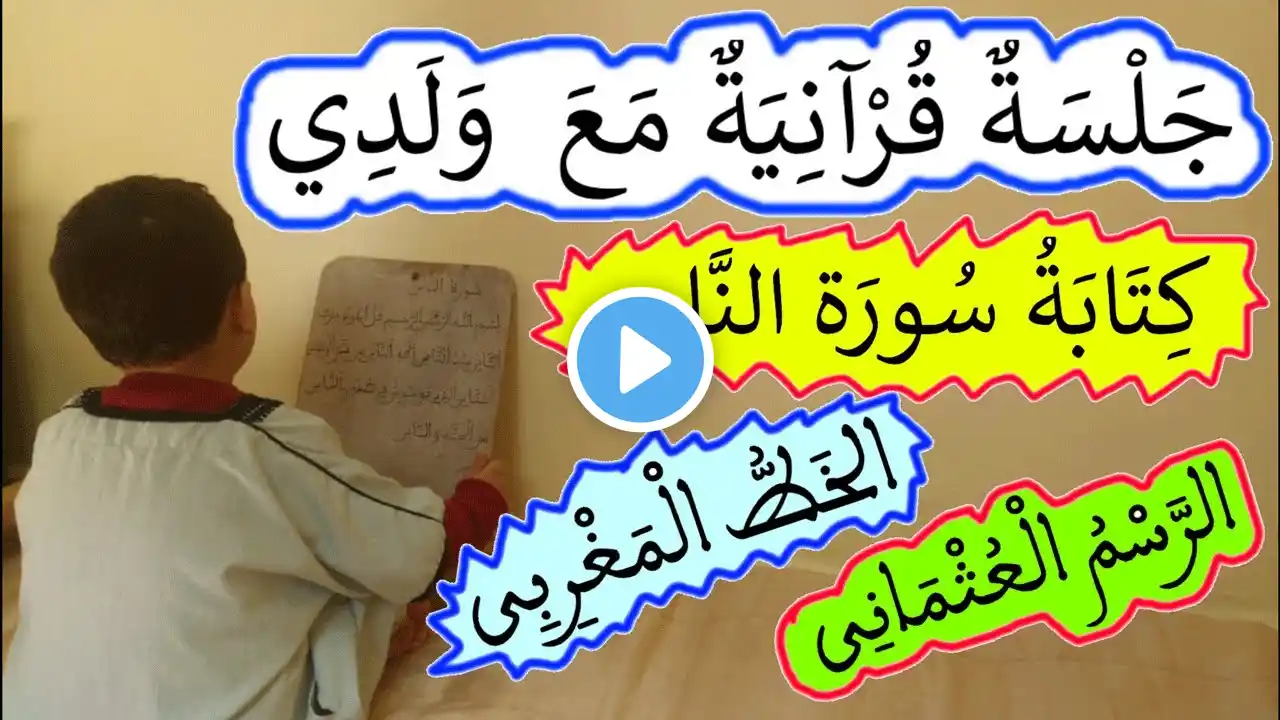 جَلْسَةٌ قُرْآنِيَةٌ مَعَ وَلَدِي
كِتَابَةُ سُورَة النَّا
الخَطُّ الْمَغْرِبِي
الرَّسْمُ الْعُثْمَانِي
سورة الناس
بسم الله الرحمن الرحيم قل اعوذ برب
الناس ملك الناس اله الناس من شر
الخناس الذي يوسوس في صدور الناس
من الجنة والناس